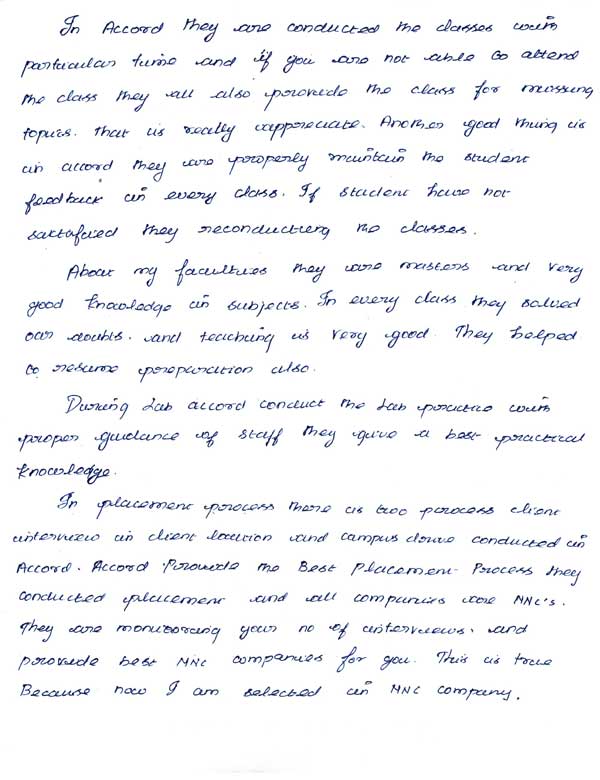 In Accord they are conducted the classes with
particular time and if you are not able to attend
the class they all also provide the class for missing
topics. that is really appreciate. Another good thing is
in accord they are properly maintain the student
feedback in every class. If student have not
satisfied they reconducting the classes.
About my faculties they are masters and very
good knowledge in subjects. In every class they solved
our doubts. and teaching is very good. They helped
to resume preparation also.
During Lab accord conduct the Lab practice with
proper guidance of staff they give a best practical
knowledge.
In placement process there is two process client
interview in client location and campus drive conducted in
Accord. Accord Provide the Best Placement Process they
conducted placement and all companies are MNC's.
They are monitoring your no of interviews. and
provide best MNC companies for you. This is true
Because now I am selected in MNC company.